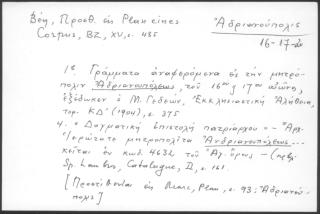 Βέη, Προσθ. εἰς Plan eines
Corpus, BZ, XV, σ. 485
Ἀδριανούπολις
16-17-αι
1ᵉ. Γράμματα ἀναφερόμενα εἰς τὴν μητρό-
πολιν Ἀδριανουπόλεως, τοῦ 16ου ἢ 17ου αἰῶνος,
ἐξέδωκεν ὁ Μ. Γεδεὼν, Ἐκκλησιαστικὴ Ἀλήθεια,
τομ. ΚΔ' (1904), σ. 375
4. «Δογματικὴ ἐπιστολὴ πατριάρχου
ἱερώτατε μητροπολῖτα Ἀνδριανουπόλεως...
κεῖται ἐν κωδ. 4632 τοῦ Ἁγ. Ὄρους
Sp. Lambros, Catalogue, II, σ. 161.
[Προστίθενται εἰς Marc, Plan, σ. 93: Ἀδριανού-
πολις]